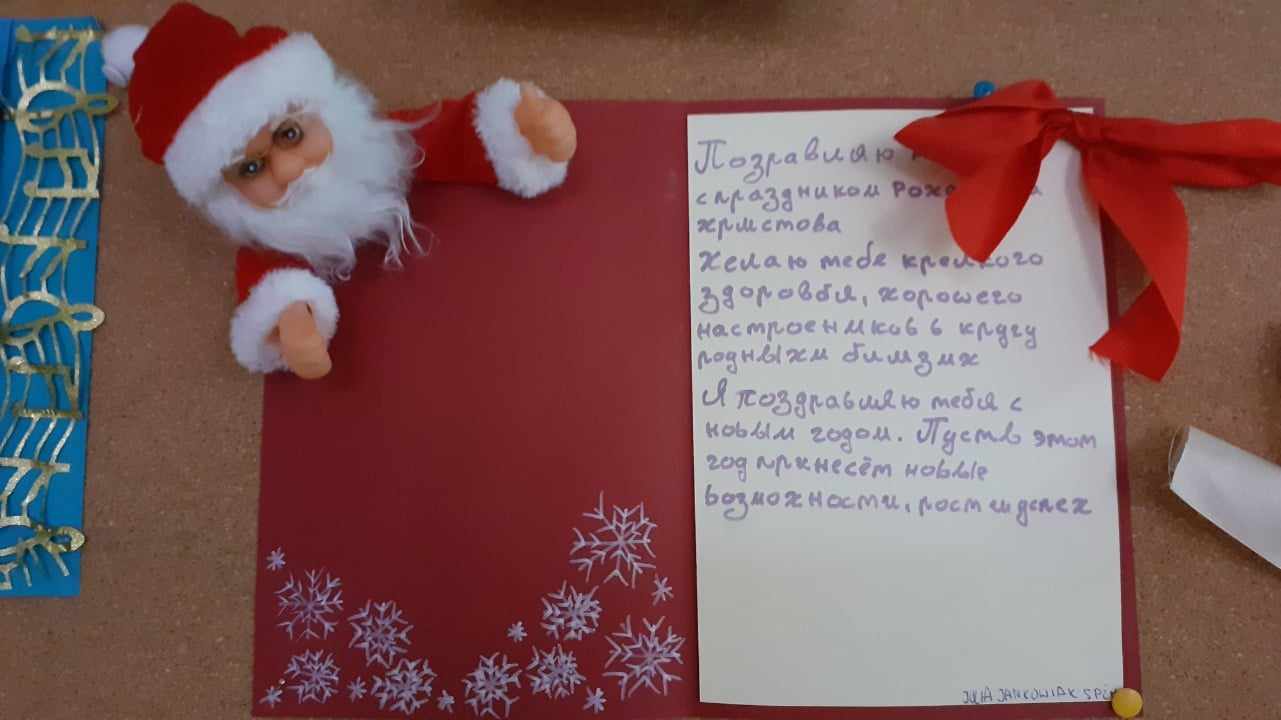 Позравляю
с праздником
христова
желаю тебе крепкого
здоровья, хорошего
настроенмков в кругу
родныхм близмх
Я поздравляю тебя с
новым годом. Пусть этот
год принесём новые
возможности, рост и успех
JULIA JANKOWIAK